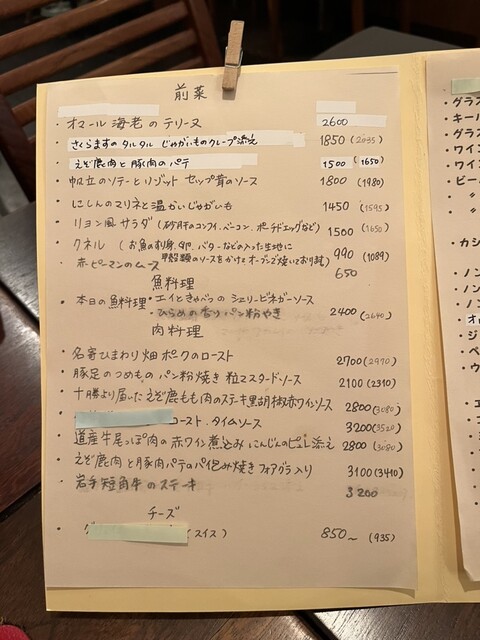 前菜
・オマール海老のテリーヌ 2600
・さくらますのタルタル じゃがいものクレープ添え 1850 (2035)
・えぞ鹿肉と豚肉のパテ 1500 (1650)
・帆立のソテーとリゾット セップ茸のソース 1800 (1980)
・にしんのマリネと温かいじゃがいも 1450 (1595)
・リヨン風サラダ (砂肝のコンフィ、ベーコン、ポーチドエッグなど) 1500 (1650)
・クネル (お魚のすり身、卵、バターなどの入った生地に
甲殻類のソースをかけてオーブンで焼いております) 990 (1089)
・赤ピーマンのムース 650
魚料理
・本日の魚料理・エイときゃべつのシェリービネガーソース
・ひらめの香りパン粉やき 2400 (2640)
肉料理
・名寄ひまわり畑ポークのロースト 2700 (2970)
・豚足のつめもの パン粉焼き 粒マスタードソース 2100 (2310)
・十勝より届いたえぞ鹿もも肉のステーキ黒胡椒赤ワインソース 2800 (3080)
・ロースト、タイムソース 3200 (3520)
・道産牛尾っぽ肉の赤ワイン煮込み にんじんのピューレ添え 2800 (3080)
・えぞ鹿肉と豚肉パテのパイ包み焼き フォアグラ入り 3100 (3410)
・岩手短角牛のステーキ 3200
チーズ
・スイス) 850~ (935)
・グラス
・キール
・グラス
・ワイン
・ワイン
・ビー
・〃
・〃
・カシ
・ノン
・ノン